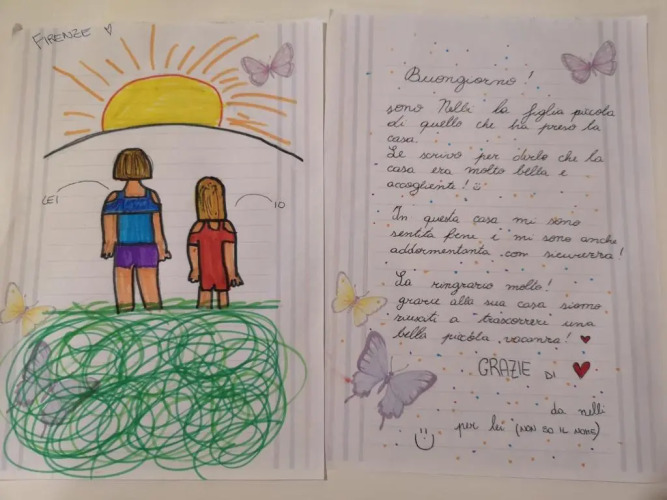 FIRENZE ♡
LEI
IO
Buongiorno!
sono Nelli la figlia piccola
di quello che ha preso la
casa.
Le scrivo per dirle che la
casa era molto bella e
accogliente! ☺
In questa casa mi sono
sentita bene e mi sono anche
addormentanta con sicurezza!
La ringrario molto!
grazie alla sua casa siamo
riusciti a trascorrere una
bella piccola vacanza! ♥
GRAZIE DI ♥
da nelli
per lei (NON SO IL NOME)